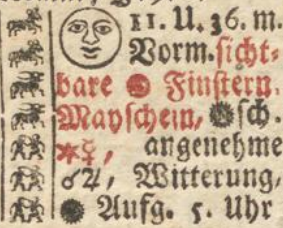 11. U. 36. m.
Vorm. sicht-
bare Finstern.
Mayschein, sch.
⚹♀, angenehme
☌♃, Witterung,
Aufg. 5. Uhr